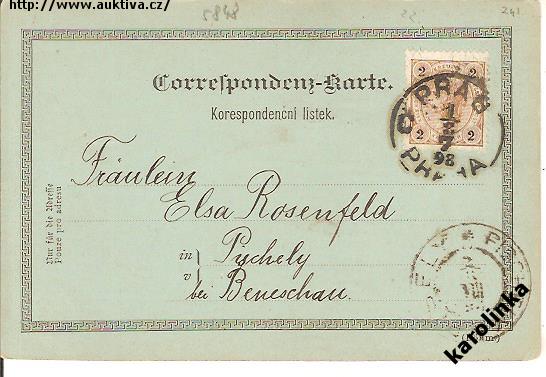 http://www.auktiva.cz/
5848
22
241
Correspondenz-Karte.
Korespondenční lístek.
2 2
2 2
PRAG
1
7
98
PRAHA
Nur für die Adresse
Pouze pro adresu
Fräulein
Elsa Rosenfeld
in
v
Pyschely
bei Beneschau.
karolinka